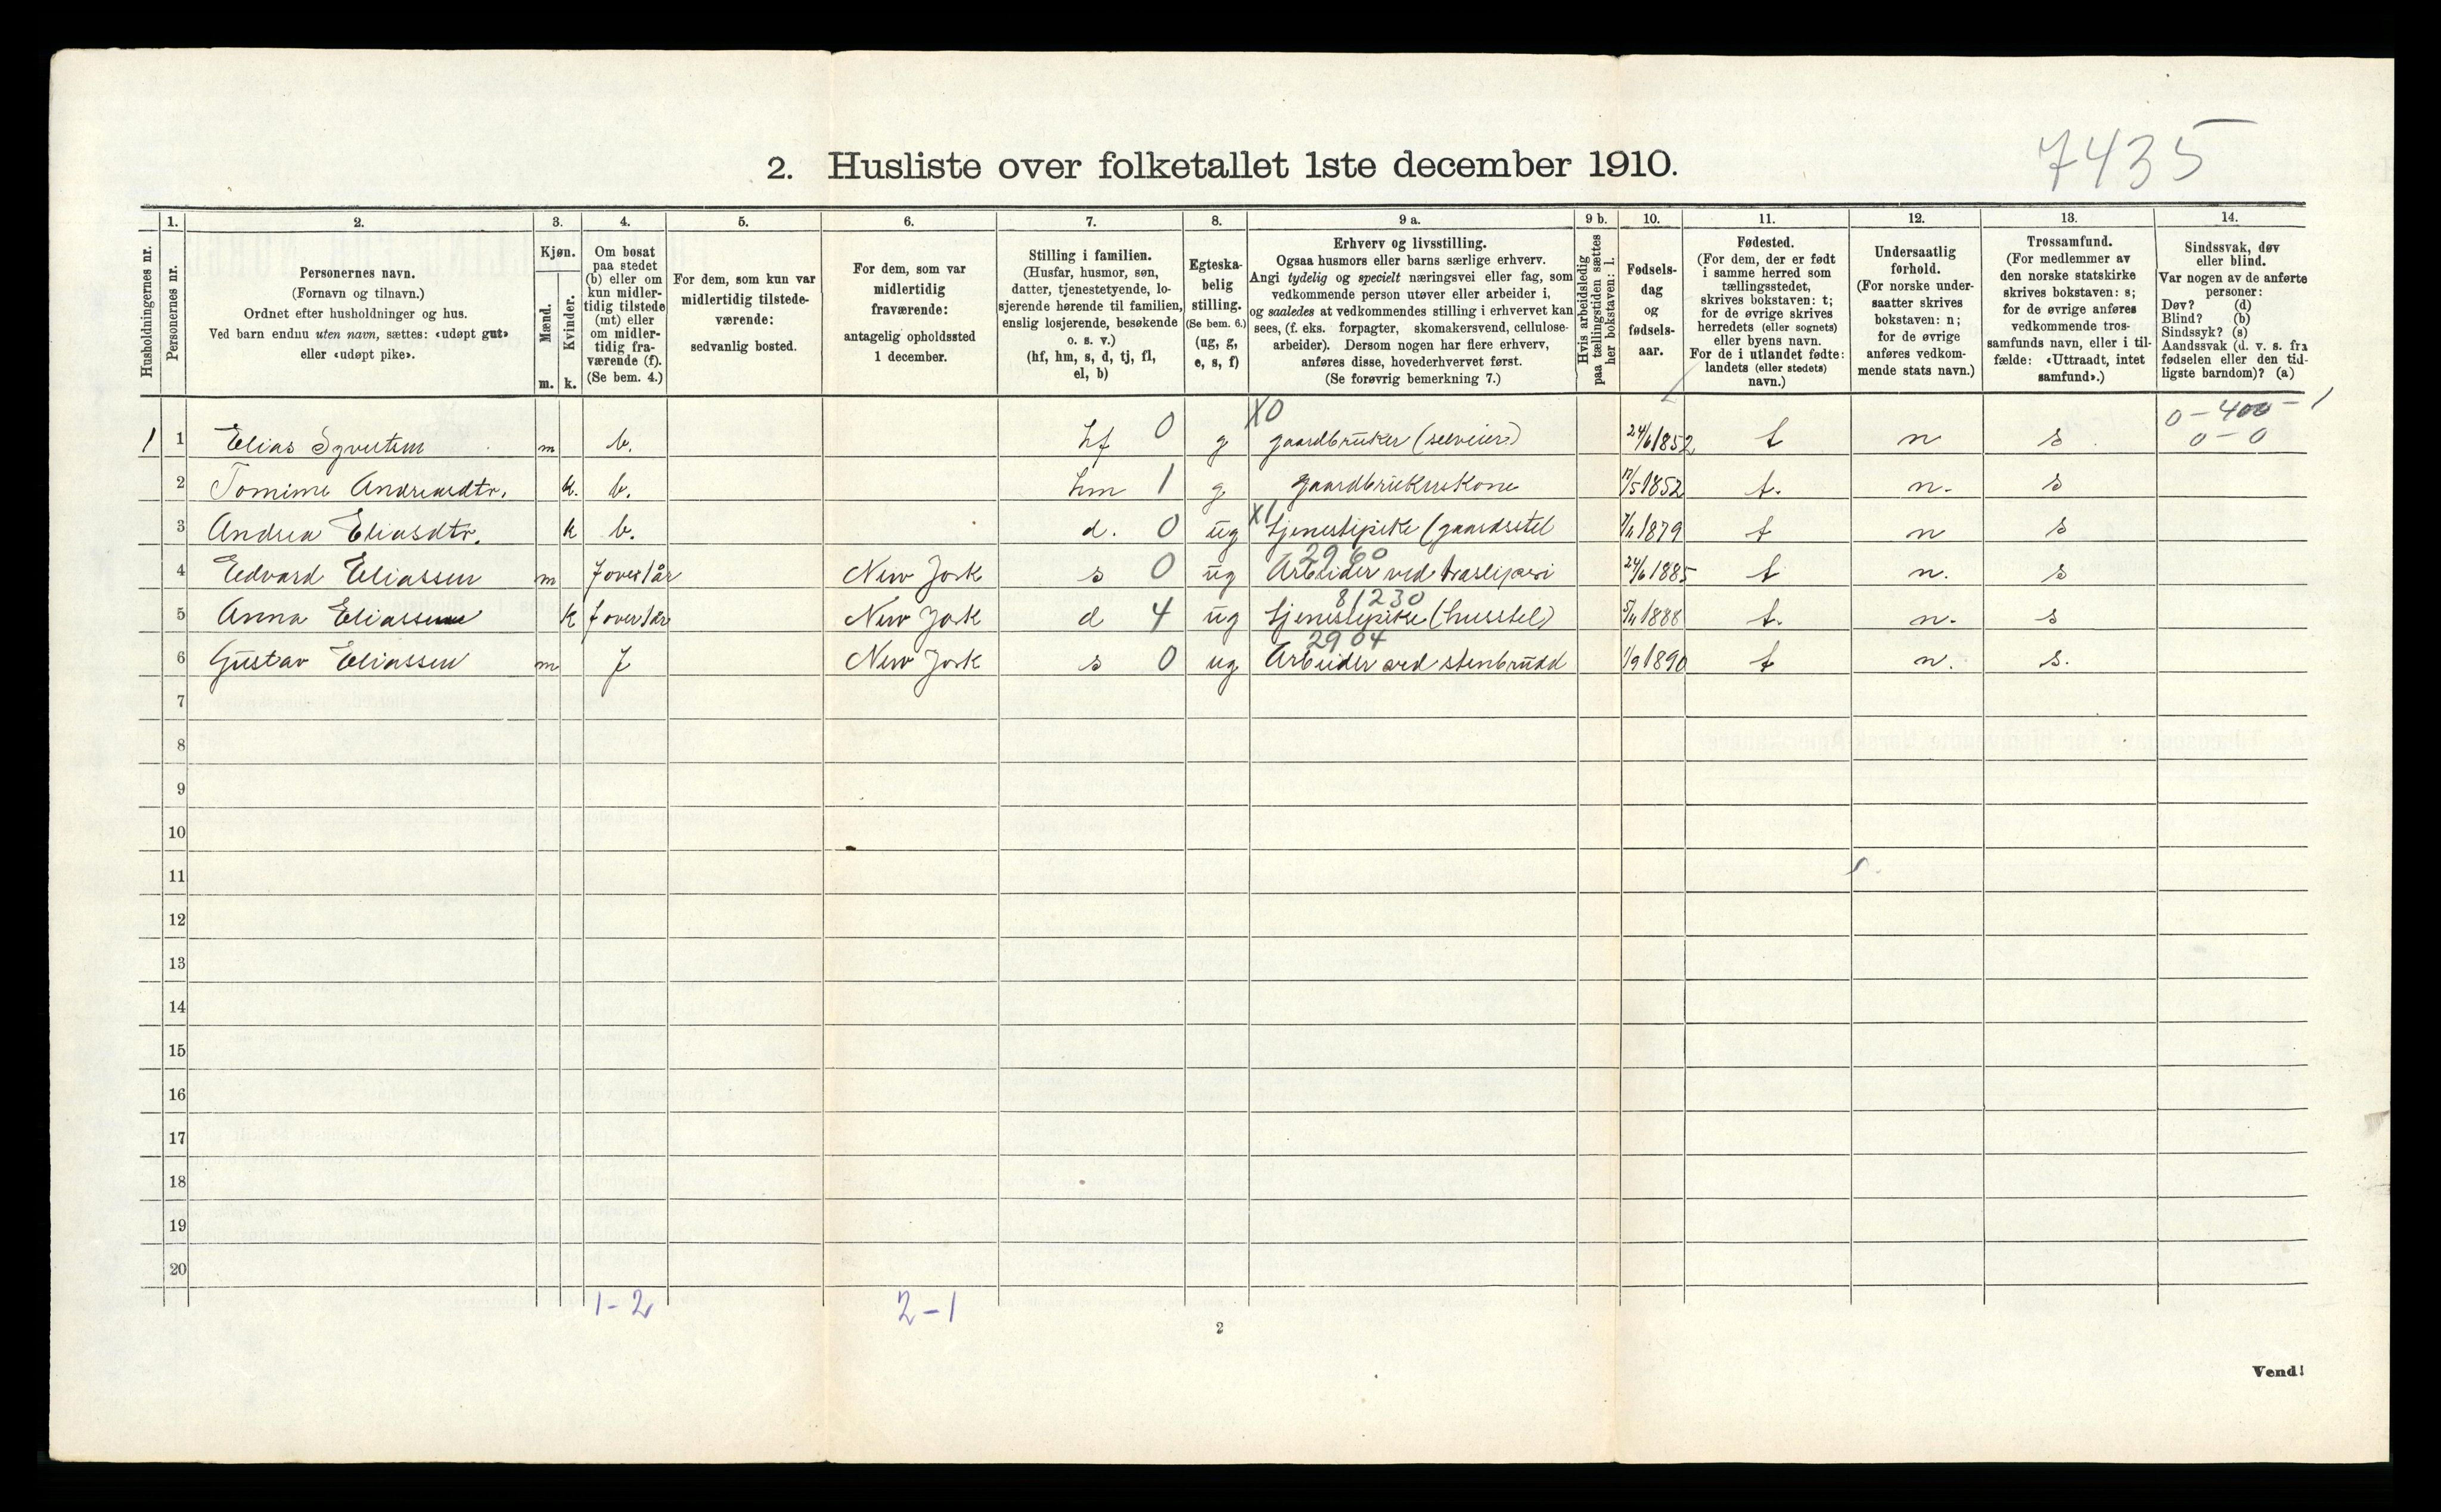 7435
2. Husliste over folketallet 1ste december 1910.
Husholdningernes nr.
1. Personernes nr.
2. Personernes navn.
(Fornavn og tilnavn.)
Ordnet efter husholdninger og hus.
Ved barn endnu uten navn, sættes: «udøpt gut»
eller «udøpt pike».
3. Kjøn.
Mænd. Kvinder.
m. k.
4. Om bosat
paa stedet
(b) eller om
kun midler-
tidig tilstede
(mt) eller
om midler-
tidig fra-
værende (f).
(Se bem. 4.)
5. For dem, som kun var
midlertidig tilstede-
værende:
sedvanlig bosted.
6. For dem, som var
midlertidig
fraværende:
antagelig opholdssted
1 december.
7. Stilling i familien.
(Husfar, husmor, søn,
datter, tjenestetyende, lo-
sjerende hørende til familien,
enslig losjerende, besøkende
o. s. v.)
(hf, hm, s, d, tj, fl,
el, b)
8. Egteska-
belig
stilling.
(Se bem. 6.)
(ug, g,
e, s, f)
9 a. Erhverv og livsstilling.
Ogsaa husmors eller barns særlige erhverv.
Angi tydelig og specielt næringsvei eller fag, som
vedkommende person utøver eller arbeider i,
og saaledes at vedkommendes stilling i erhvervet kan
sees, (f. eks. forpagter, skomakersvend, cellulose-
arbeider). Dersom nogen har flere erhverv,
anføres disse, hovederhvervet først.
(Se forøvrig bemerkning 7.)
9 b. Hvis arbeidsledig
paa tællingstiden sættes
her bokstaven: l.
10. Fødsels-
dag
og
fødsels-
aar.
11. Fødested.
(For dem, der er født
i samme herred som
tællingsstedet,
skrives bokstaven: t;
for de øvrige skrives
herredets (eller sognets)
eller byens navn.
For de i utlandet fødte:
landets (eller stedets)
navn.)
12. Undersaatlig
forhold.
(For norske under-
saatter skrives
bokstaven: n;
for de øvrige
anføres vedkom-
mende stats navn.)
13. Trossamfund.
(For medlemmer av
den norske statskirke
skrives bokstaven: s;
for de øvrige anføres
vedkommende tros-
samfunds navn, eller i til-
fælde: «Uttraadt, intet
samfund».)
14. Sindssvak, døv
eller blind.
Var nogen av de anførte
personer:
Døv? (d)
Blind? (b)
Sindssyk? (s)
Aandssvak (d. v. s. fra
fødselen eller den tid-
ligste barndom)? (a)
X0 0 - 400 - 1
1 1 Elias m b. hf 0 g gaardbruker (selveier) 24/6 1852 t n s 0 - 0
2 Tomine Andreasdtr. k. b. hm 1 g gaardbrukerskone 17/5 1852 t. n. s
X1
3 Andrea Eliasdtr. k b. d. 0 ug tjenestepike (gaardsstel 1879 t n s
2960
4 Edvard Eliassen m f over 1 år New Jork s 0 ug Arbeider ved træsliperi 24/6 1885 t n. s
81230
5 Anna Eliassen k f over 1 år New Jork d 4 ug tjenestepike (husstel) 1888 t. n. s
2904
6 Gustav Eliassen m f New Jork s 0 ug Arbeider ved stenbrudd 1/9 1890 t n. s.
7
8
9
10
11
12
13
14
15
16
17
18
19
20
1-2 2-1
2
Vend!